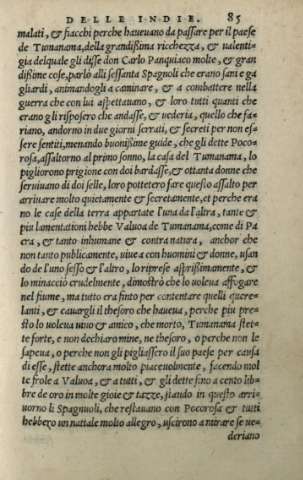 DELLE INDIE. 85
malati, & fiacchi perche haueuano da passare per il paese
de Tumanama, della grandißima ricchezza, & ualenti=
gia delquale gli disse don Carlo Panquiaco molte, & gran
dißime cose, parlò alli sessanta Spagnoli che erano sani e ga
gliardi, animandogli a caminare, & a combattere nella
guerra che con lui aspettauano, & loro tutti quanti che
erano gli risposero che andasse, & uederia, quello che fa=
riano, andorno in due giorni serrati, & secreti per non es=
sere sentiti, menando buonißime guide, che gli dette Poco=
rosa, assaltorno al primo sonno, la casa del Tumanama, lo
pigliorono prigione con doi bardasse, & ottanta donne che
seruiuano di doi selle, loro pottetero fare questo assalto per
arriuare molto quietamente & secretamente, et perche era
no le case della terra appartate l'una da l'altra, tante &
piu lamentationi hebbe Valuoa de Tumanama, come di Pa
cra, & tanto inhumane & contra natura, anchor che
non tanto publicamente, uiuea con huomini & donne, usan
do de l'uno sesso & l'altro, lo riprese asprißimamente, &
lo minacciò crudelmente, dimostrò che lo uoleua affogare
nel fiume, ma tutto era finto per contentare quelli quere=
lanti, & cauargli il thesoro che haueua, perche piu pre=
sto lo uoleua uiuo & amico, che morto, Tumanama stet=
te forte, e non dechiarò mine, ne thesoro, o perche non le
sapeua, o perche non gli pigliassero il suo paese per causa
di esse, stette anchora molto piaceuolmente, facendo mol
te frole a Valuoa, & a tutti, & gli dette fino a cento lib=
bre de oro in molte gioie & tazze, stando in questo arri=
uorno li Spagnuoli, che restauano con Pocorosa & tutti
hebbero un natiale molto allegro, uscirono a mirare se ue=
deriano